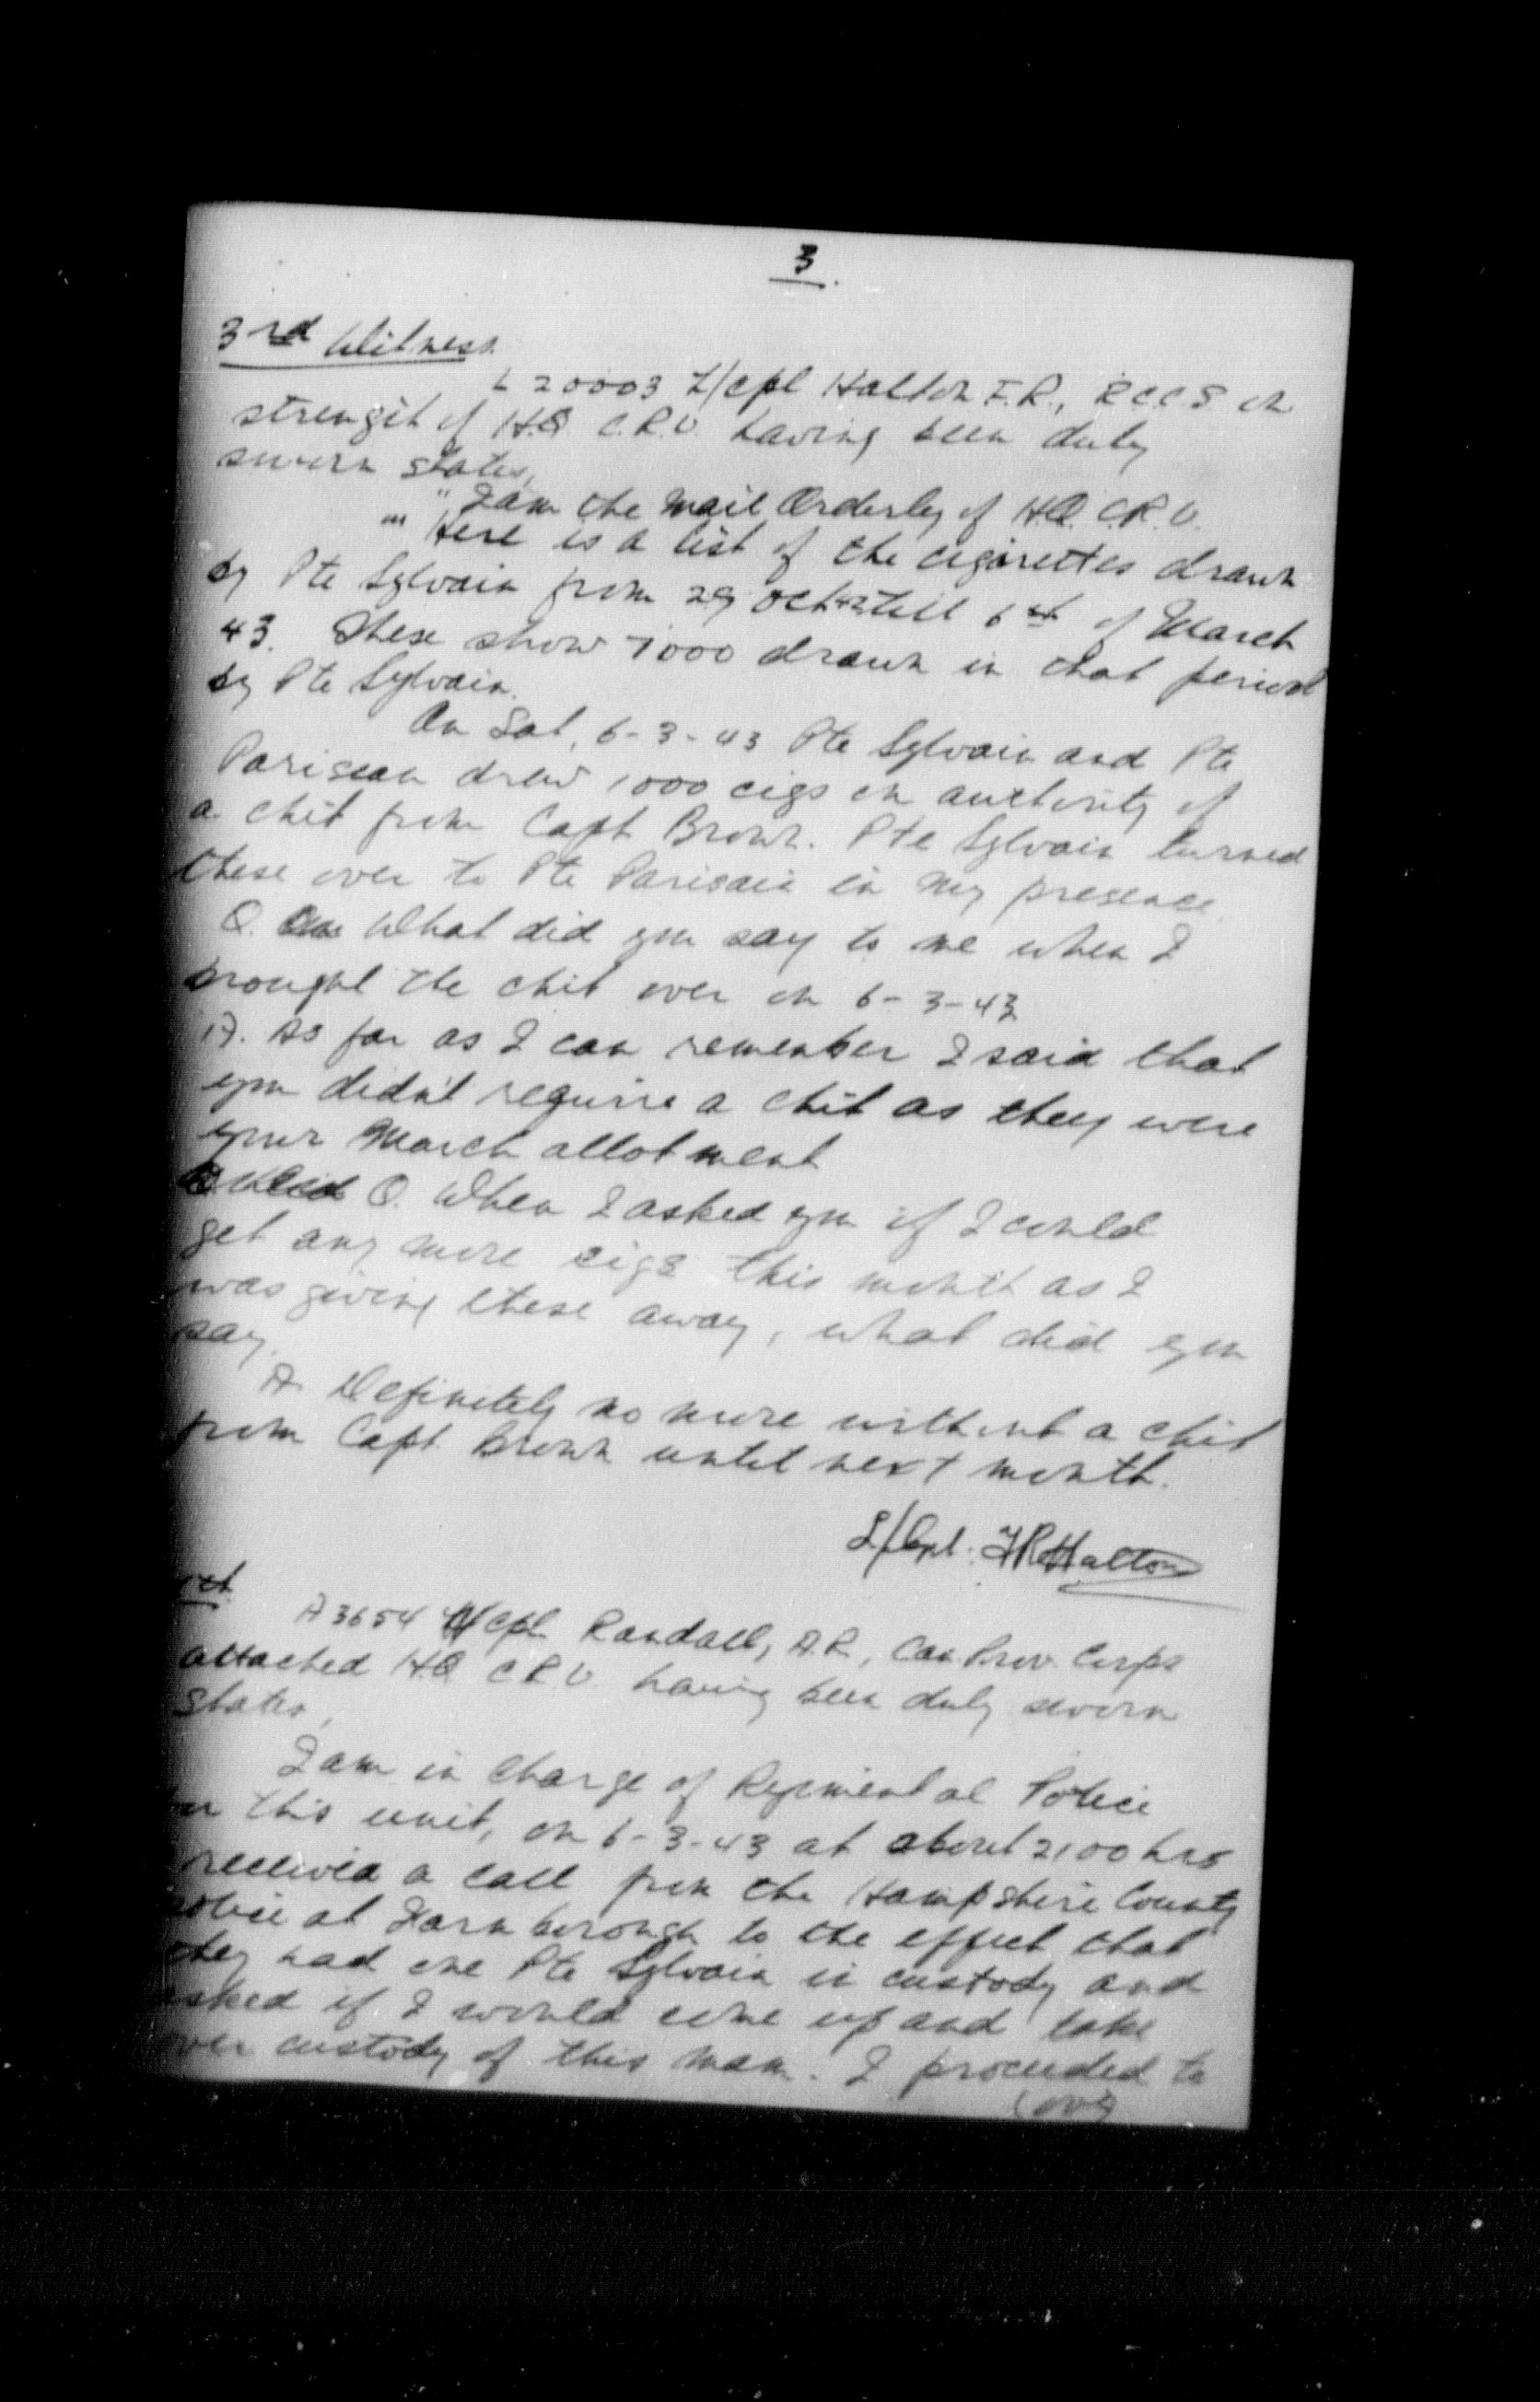 3.
3rd Witness.
L 20003 L/Cpl Halton F.R., R.C.C.S on
strength of H.Q. C.R.U. having been duly
sworn states,
"I am the Mail Orderly of H.Q. C.R.U.
" Here is a list of the cigarettes drawn
by Pte Sylvain from 29 Oct 42 till 6th of March
43. These show 7000 drawn in that period
by Pte Sylvain.
On Sat, 6-3-43 Pte Sylvain and Pte
Pariseau drew 1000 cigs on authority of
a chit from Capt Brown. Pte Sylvain turned
these over to Pte in my presence.
Q. What did you say to me when I
brought the chit over on 6-3-43
A. As far as I can remember I said that
you didn't require a chit as they were
your March allotment
Q. When I asked you if I could
get any more cigs this month as I
was giving these away, what did you
say.
A. Definitely no more without a chit
from Capt Brown until next month.
L/Cpl. F R Halton
A3654 Cpl Randall, A.R., Can. Prov. Corps
attached HQ C R U having been duly sworn
states,
I am in charge of Regimental Police
this unit, on 6-3-43 at about 2100 hrs
received a call from the Hampshire County
police at Farnborough to the effect that
they had one Pte Sylvain in custody and
asked if I would come up and take
over custody of this man. I proceeded to
(over)